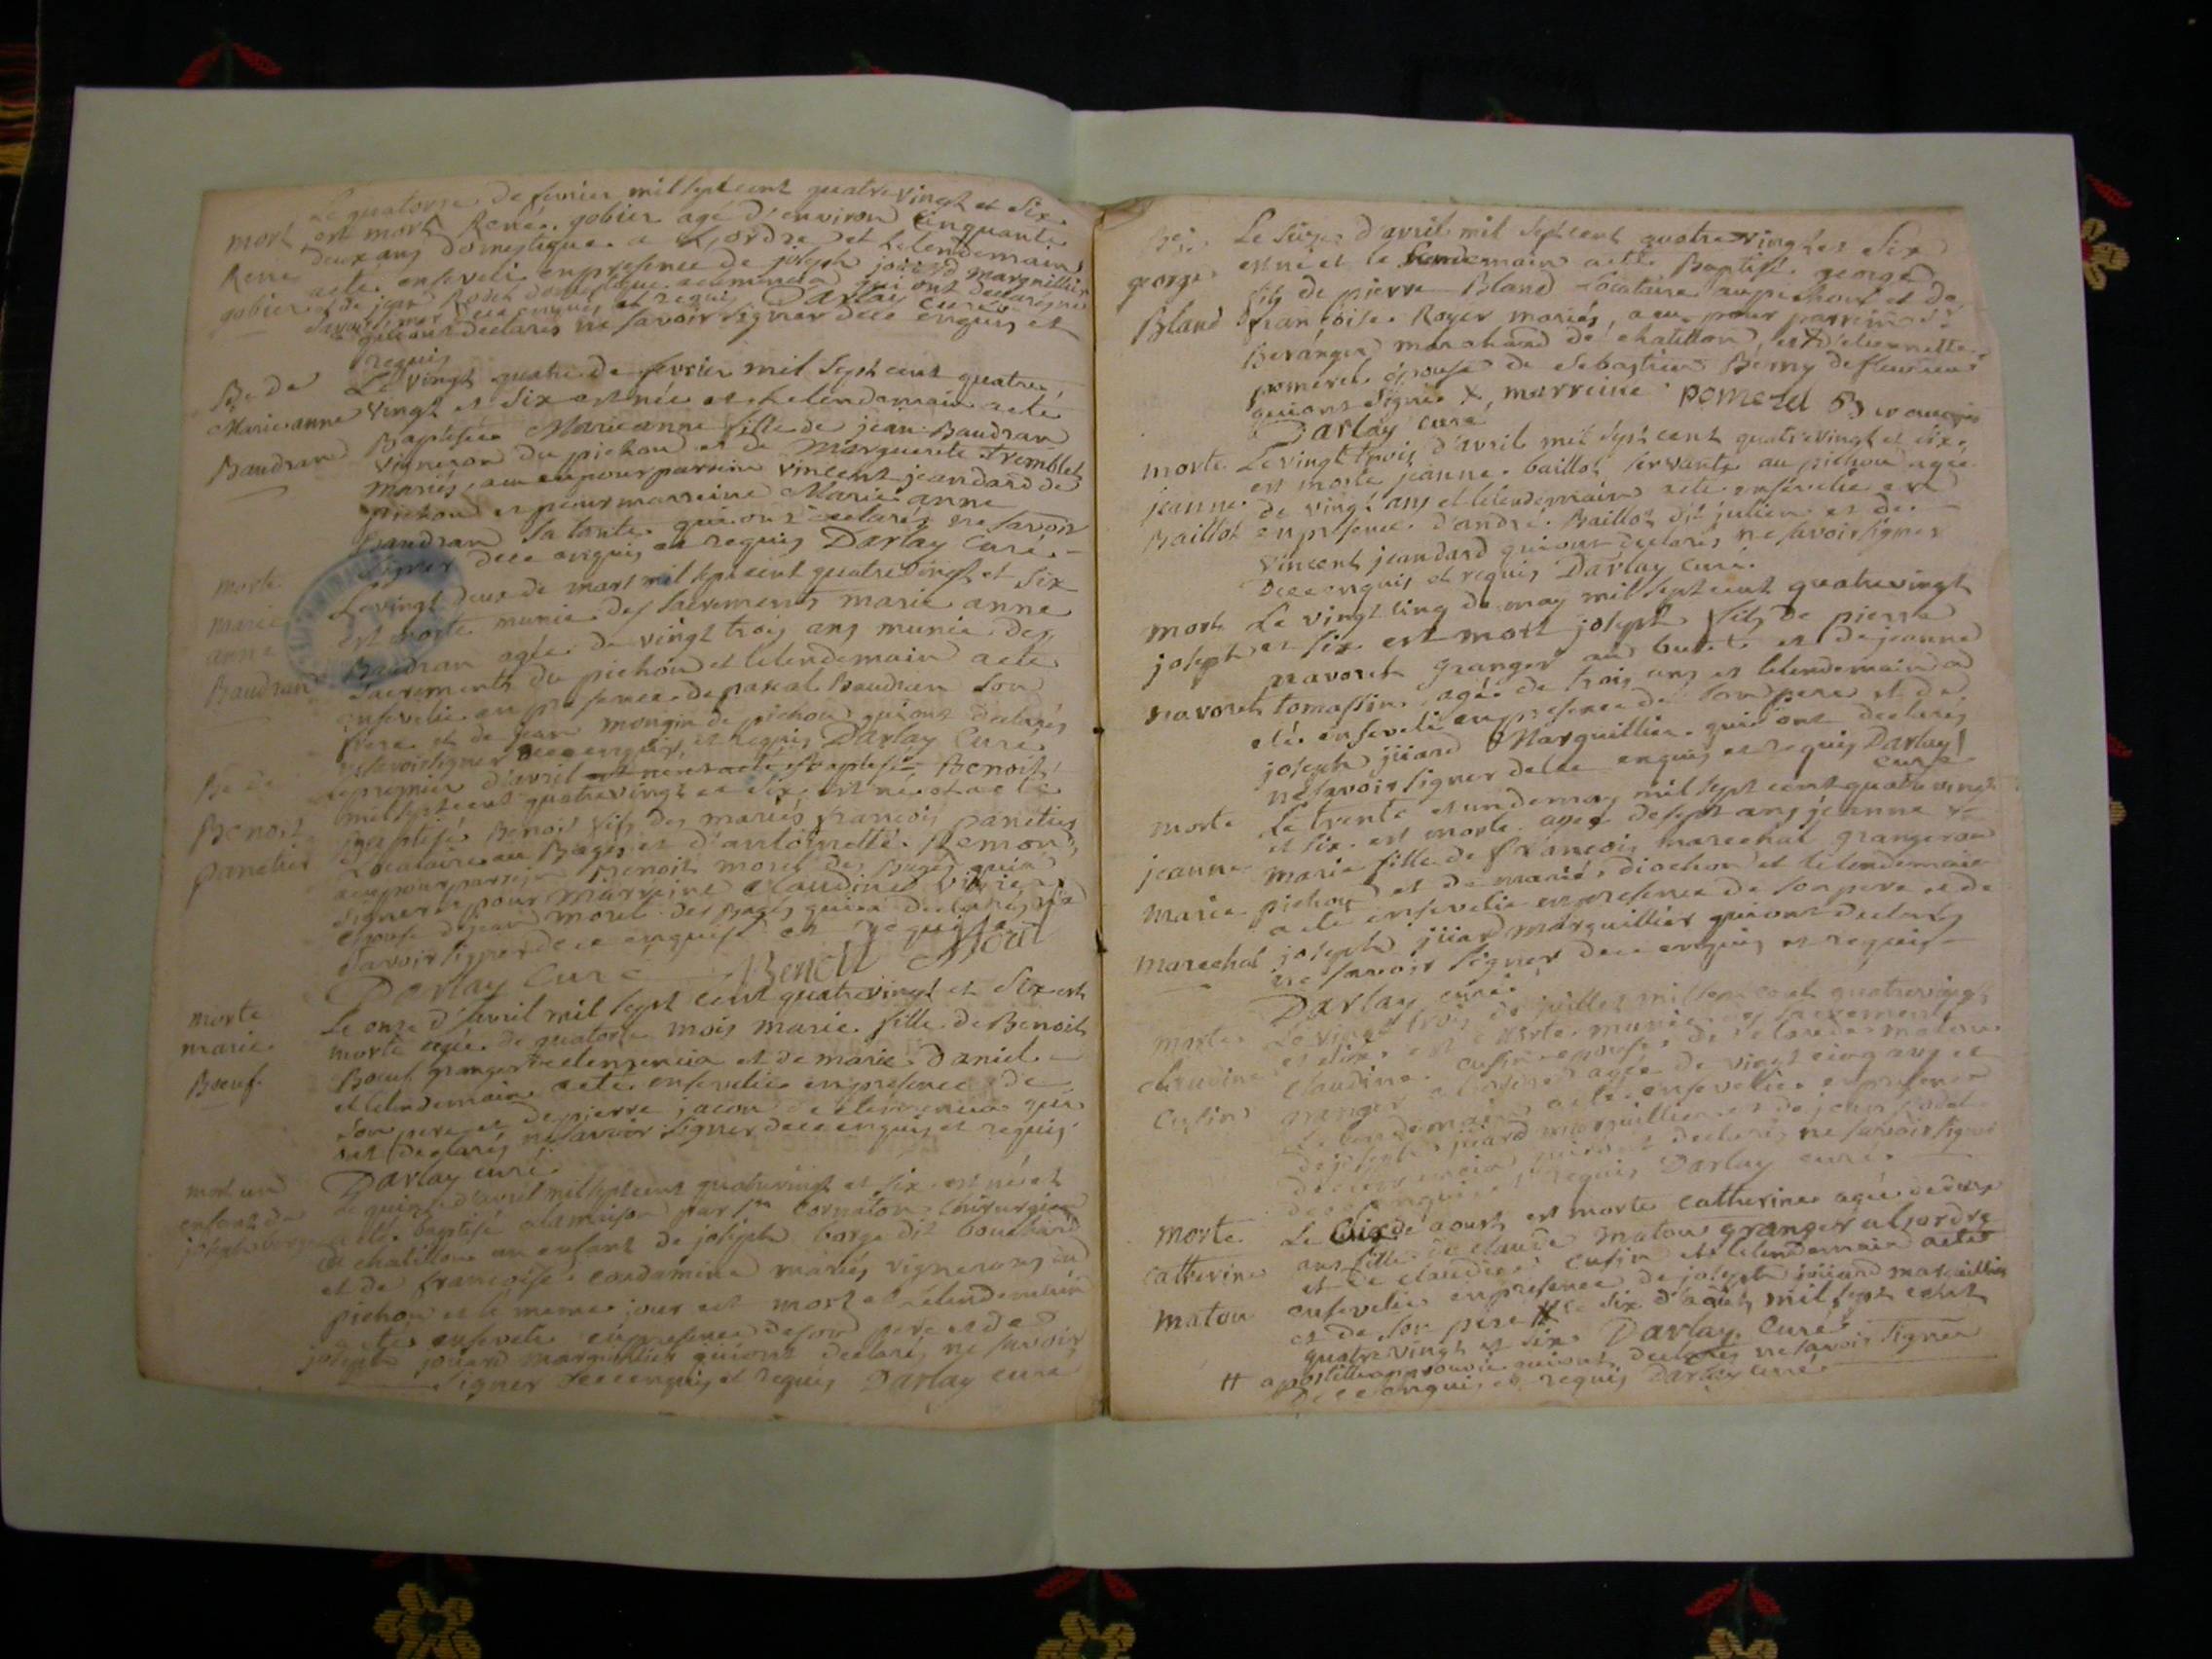 Le quatorze de fevrier mil sept cent quatre vingt et six
mort est mort René gobier agé d'environ cinquante
deux ans domestique a et le lendemain
René a eté enseveli en presence de joseph jiiard marguillier
gobier et de jean Rodet domestique qui ont declarés ne
savoir signer de ce enquis et requis Darlay curé
qui ont declarés ne savoir signer de ce enquis et
requis
B. de Le vingt quatre de fevrier mil sept cent quatre
Marie anne vingt et six est née et le lendemain a eté
Baptisée Marie anne fille de jean Baudran
Baudran vigneron du pichou et de Marguerite Tremblet
mariés, a eu pour parrein vincent jeandard de
pichou et pour marreine Marie anne
Baudran sa tante qui ont declarés ne savoir
signer de ce enquis et requis Darlay Curé
morte Le vingt deux de mars mil sept cent quatre vingt et six
marie est morte munie des sacrements marie anne
anne Baudran agée de vingt trois ans munie des
Baudran sacrements du pichou et le lendemain a eté
ensevelie en presence de pascal Baudran son
frere et de jean mongin de pichou qui ont declarés
ne savoir signer de ce enquis et requis Darlay Curé
B. de Le premier d'avril est né et a eté Baptisé Benoit
mil sept cent quatre vingt et six est né et a eté
Benoit Baptisé Benoit fils des mariés françois panetier
panetier Locataire au Bages et d'antoinette Remon
a eu pour parrein Benoit morel des Bages qui a
signé et pour marreine claudine
epouse de jean morel des Bages qui a declarés ne
savoir signer de ce enquise et requise
Darlay Curé Benoit Morel
morte Le onze d'avril mil sept cent quatre vingt et six est
marie morte agée de quatorze mois marie fille de Benoit
Boeuf Boeuf granger et de marie Daniel
et le lendemain a eté ensevelie en presence de
son pere et de pierre jacon de qui
ont declarés ne savoir signer de ce enquis et requis
Darlay curé
mort un Le quinze d'avril mil sept cent quatre vingt et six est né et
enfant de a eté baptisé a la maison par sr cornaton chirurgien
joseph borge de chatillon un enfant de joseph borge dit bouchard
et de françoise condamine mariés vignerons au
pichou et le meme jour est mort et le lendemain
a eté enseveli en presence de son pere et de
joseph jiiard marguillier qui ont declarés ne savoir
signer de ce enquis et requis Darlay curé
B. Le d'avril mil sept cent quatre vingt et six
george est né et le lendemain a eté Baptisé george
fils de pierre Bland Locataire au pichout et de
Bland françoise Royer mariés, a eu pour parrein sr
Beranger marchand de chatillon, et d'etiennette
pomerel epouse de sebastien Berny de fleurieux
qui ont signé X marreine pomerel
Darlay curé
morte Le vingt trois d'avril mil sept cent quatre vingt et six
est morte jeanne baillot servante au pichou agée
jeanne de vingt ans et le lendemain a eté ensevelie
Baillot en presence d'andré Baillot dit julien et de
vincent jeandard qui ont declarés ne savoir signer
de ce enquis et requis Darlay curé
mort Le vingt cinq de may mil sept cent quatre vingt
joseph et six est mort joseph fils de pierre
navoret granger au et de jeanne
navoret tomassin agé de trois ans et le lendemain a
eté enseveli en presence de son pere et de
joseph jiiard Marguillier qui ont declarés
ne savoir signer de ce enquis et requis Darlay
curé
morte Le trente et un de may mil sept cent quatre vingt
et six est morte agée de sept ans jeanne
jeanne marie fille de françois marechal granger au
marie pichou et de marie diochon et le lendemain
a eté ensevelie en presence de son pere et de
marechal joseph jiiard marguillier qui ont declarés
ne savoir signer de ce enquis et requis
Darlay curé
morte Le vingt trois de juillet mil sept cent quatre vingt
et six est morte munie des sacrements
claudine claudine cusin epouse de claude matou
cusin granger a agée de vingt cinq ans et
le lendemain a eté ensevelie en presence
de joseph jiiard marguillier et de jean rodet
qui ont declarés ne savoir signer
de ce enquis et requis Darlay curé
morte Le six de aoust est morte catherine agée de deux
catherine ans fille de claude matou granger a l'ordre
et de claudine cusin et le lendemain a eté
matou ensevelie en presence de joseph jiiard marguillier
et de son pere # le six d'aoust mil sept cent
quatre vingt et six Darlay Curé
# apostille approuvée qui ont declarés ne savoir signer
de ce enquis et requis Darlay curé